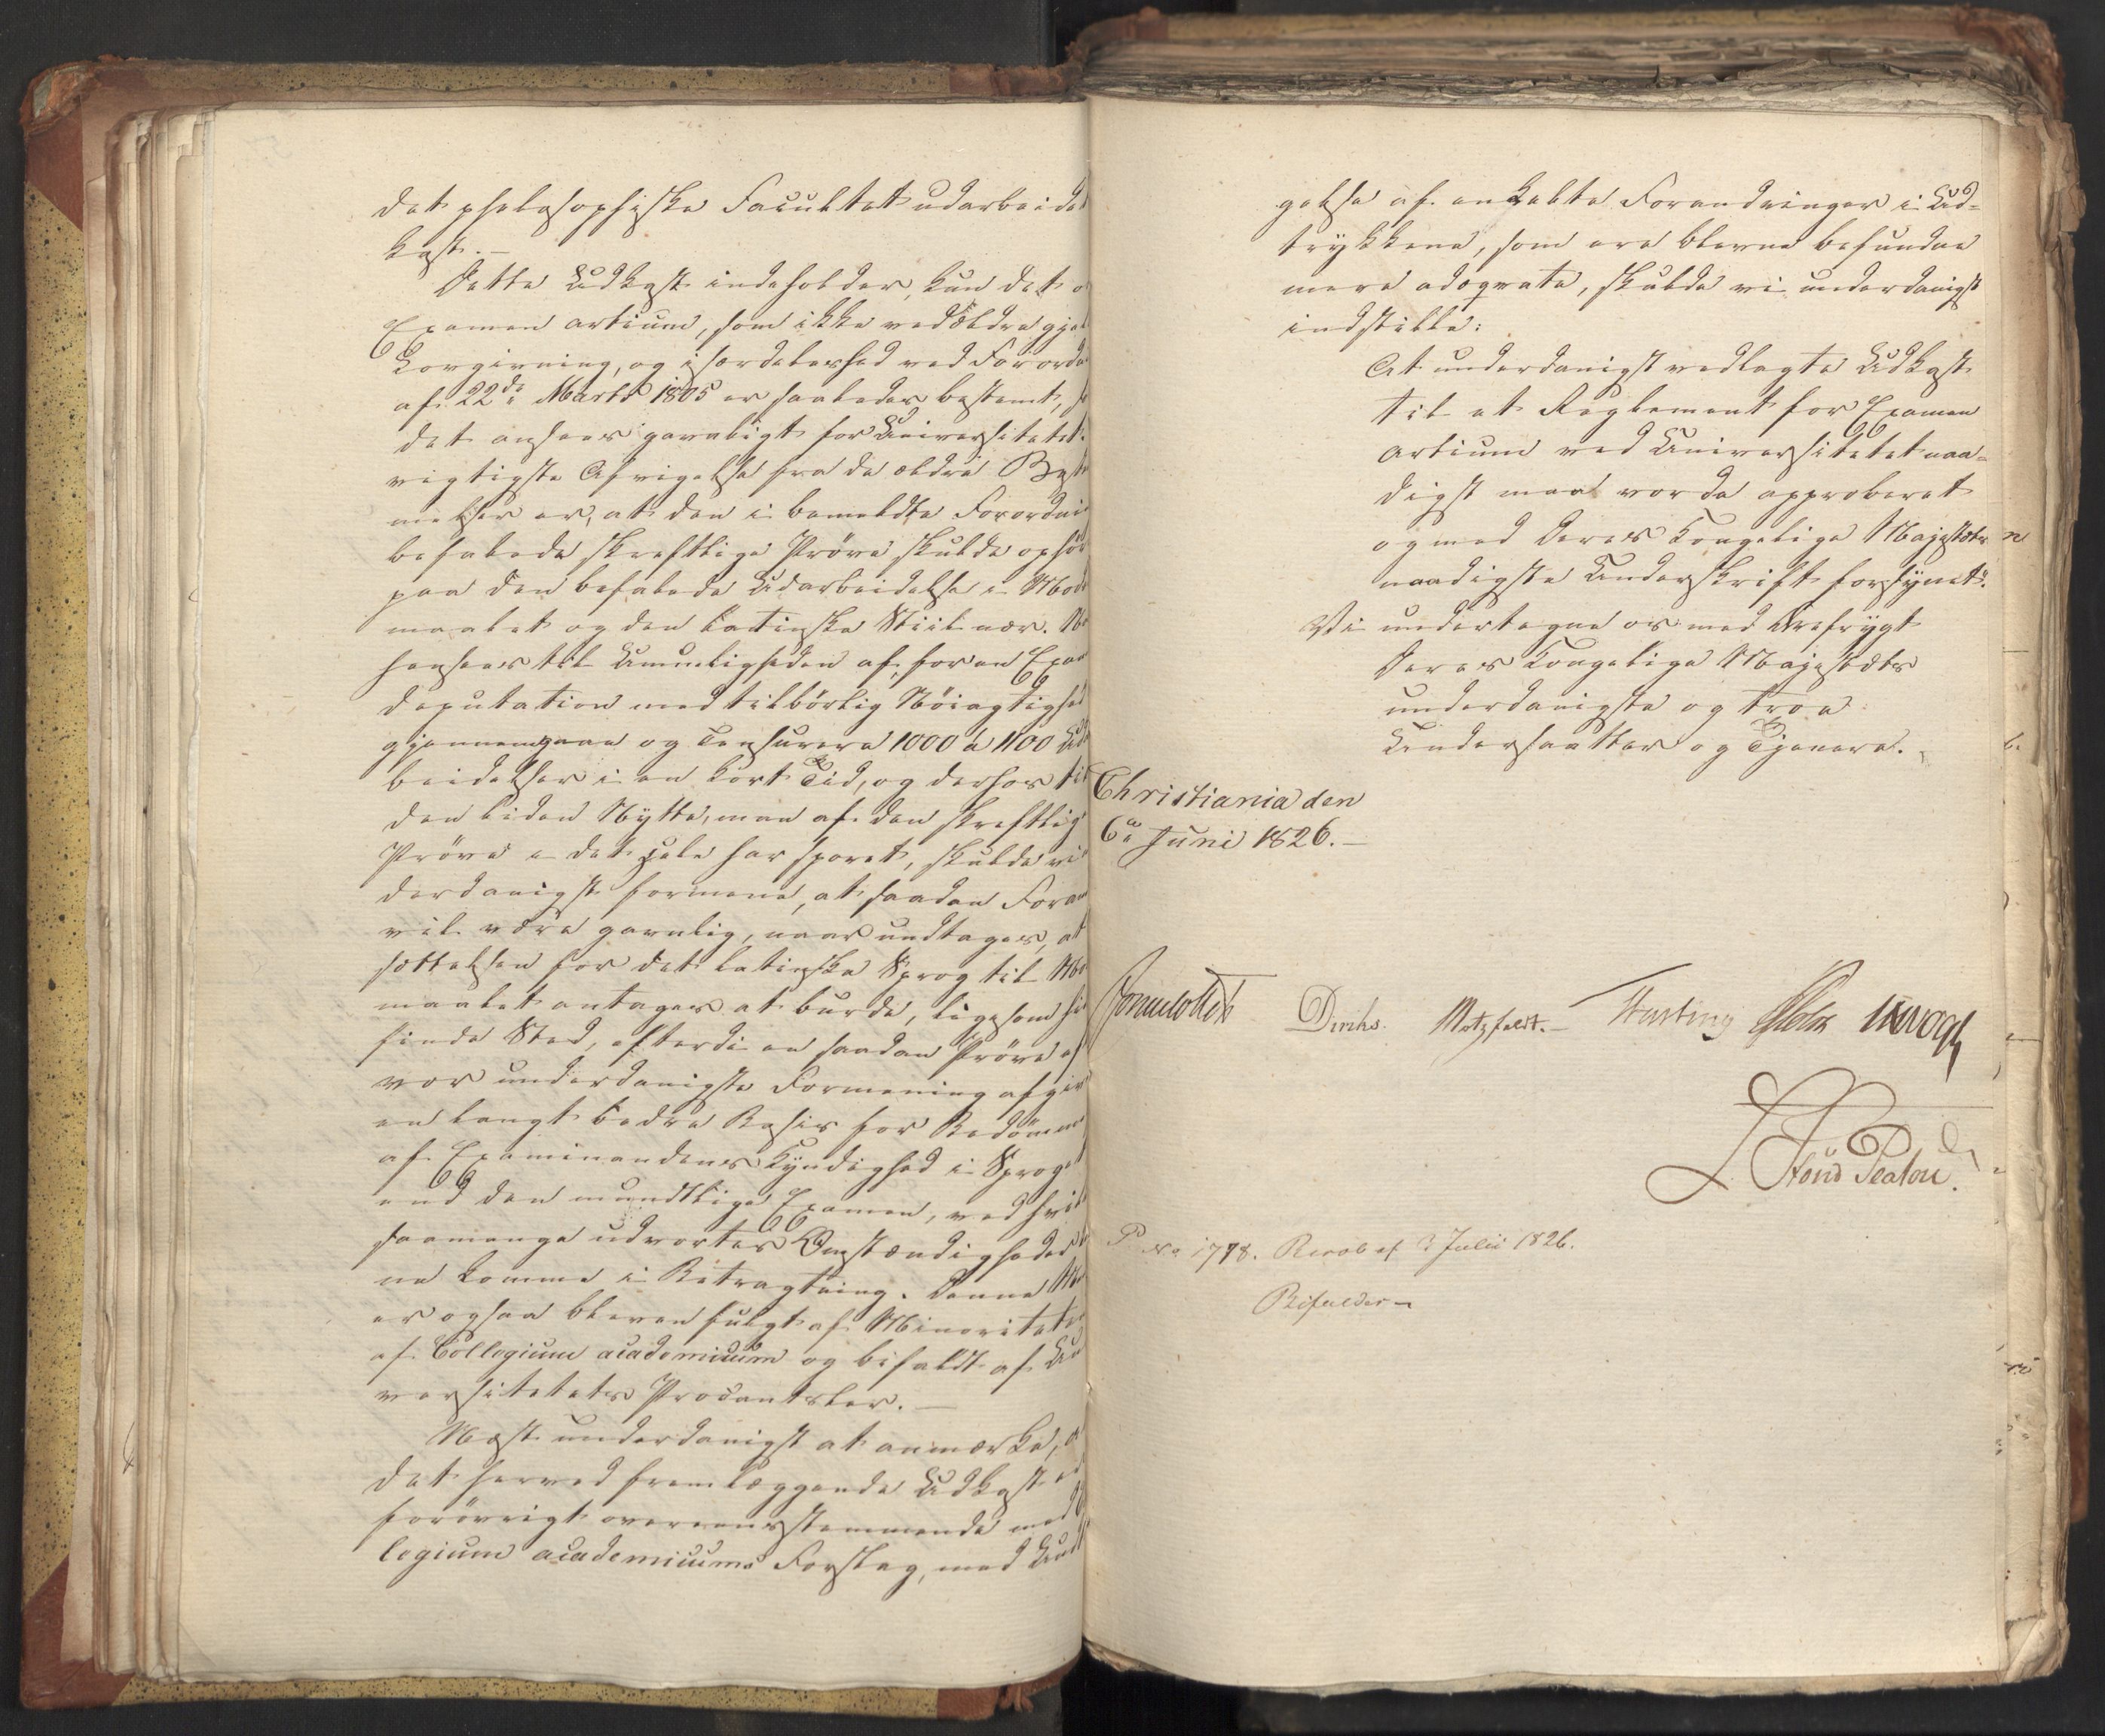 det philosophiske Facultet udarbeidet
kast. —
Dette Udkast indeholder, kun det
Examen artium, som ikke ved ældre gjel
Lovgivning, og i særdeleshed ved Forord
af 22de Marts 1805 er saaledes bestemt,
det ansees gavnligt for Universitetet.
vigtigste Afvigelse fra de ældre Beste
melser er, at den i bemeldte Forordni
befalede skriftlige Prøve skulde ophør
paa den befalede Udarbeidelse i Mod
maalet og den latinske Stiil nær.
hensees til Umueligheden af, for en Exam
deputation med tilbørlig Nöiagtighed
gjennemgaae og Censurere 1000 à 1100 Ud
beidelser i en kort Tid, og derhos til
den liden Nytte, man af den skriftlig
Pröve i det Hele har sporet, skulde vi
derdanigst formene, at saadan Foran
vil være gavnlig, naar undtages, at
sættelsen fra det latinske Sprog til Mo
maalet antages at burde, ligesom hi
finde Sted, efterdi en saadan Pröve
vor underdanigste Formening afgiv
en langt bedre Basis for Bedömme
af Examinandens Kyndighed i Sproget
end den mundtlige Examen, ved hvil
saamange udvortes Omstændigheder
ne komme i Betragtning. Denne
er ogsaa bleven fulgt af Minoriteten
af Collegium academicum og bifaldt af Un
versitetets Procantsler. —
Næst underdanigst at anmærke,
det herved fremlæggende Udkast
forövrigt overeensstemmende med
legium academicums Forslag, med Und
gelse af enkelte Forandringer i Ud-
trykkene, som ere blevne befundne
mere adæqvate, skulde vi underdanigst
indstille:
At underdanigst vedlagte Udkast
til et Reglement for Examen
artium ved Universitetet naa-
digst maa vorde approberet
og med Deres Kongelige Majestæts
naadigste Underskrift forsynet.
Vi undertegne os med Ærefrygt
Deres Kongelige Majestæts
underdanigste og troe
Undersaatter og Tjenere.
Christiania den
6te Juni 1826. —
Sommelhielm Diriks. Motzfeldt. — Fasting Holst JHVogt
No 1778. Resol af 3 Julii 1826.
Bifaldes —